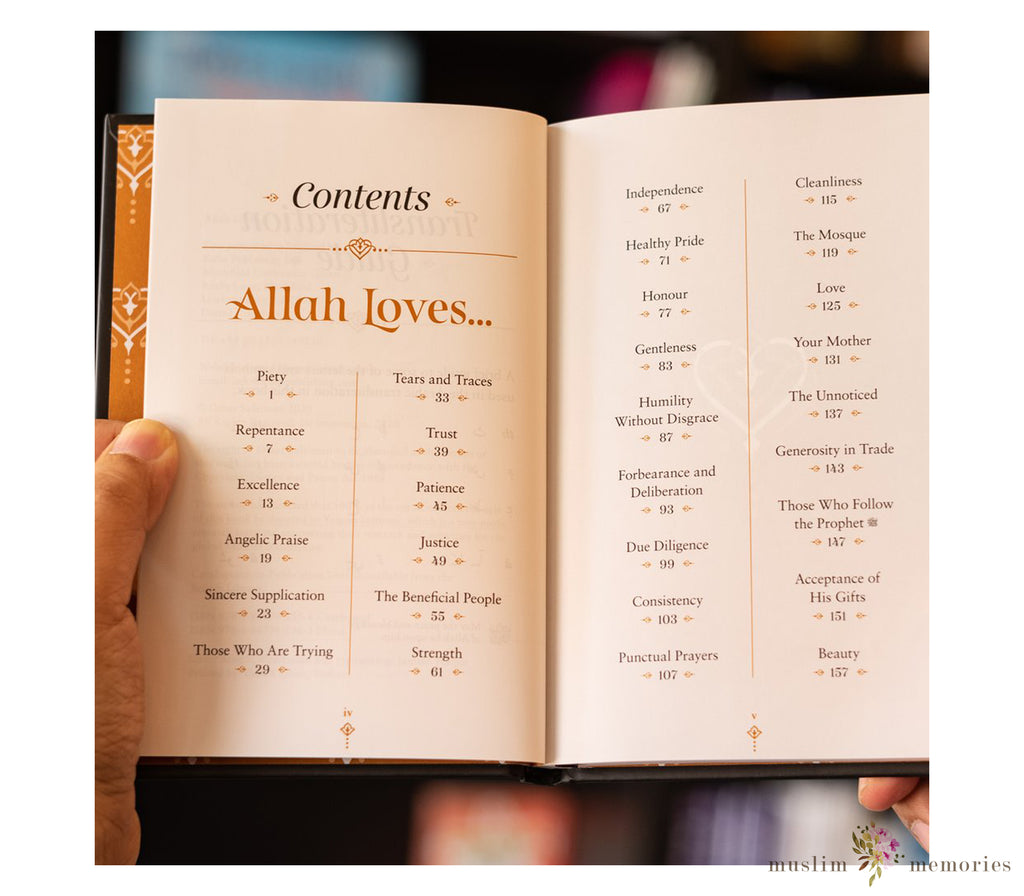 Contents
Allah Loves...
Piety
1
Repentance
7
Excellence
13
Angelic Praise
19
Sincere Supplication
23
Those Who Are Trying
29
Tears and Traces
33
Trust
39
Patience
45
Justice
49
The Beneficial People
55
Strength
61
iv
Independence
67
Healthy Pride
71
Honour
77
Gentleness
83
Humility
Without Disgrace
87
Forbearance and
Deliberation
93
Due Diligence
99
Consistency
103
Punctual Prayers
107
Cleanliness
115
The Mosque
119
Love
125
Your Mother
131
The Unnoticed
137
Generosity in Trade
143
Those Who Follow
the Prophet ﷺ
147
Acceptance of
His Gifts
151
Beauty
157
v
muslim memories